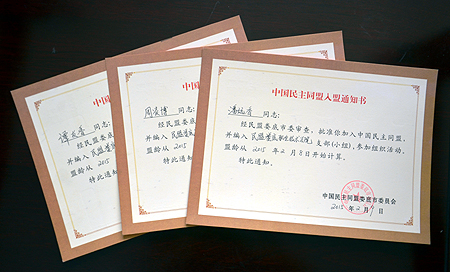 中国
同志:
经民盟娄底
并编入 民盟娄底
盟龄从 2015
特此通
中国民
同志:
经民盟娄底市
并编入 民盟娄底
盟龄从 2015
特此通知
中国民主同盟入盟通知书
同志:
经民盟娄底市委审查,批准你加入中国民主同盟,
并编入 民盟娄底职业技术学院 支部(小组),参加组织活动。
盟龄从 2015 年 2 月 8 日开始计算。
特此通知。
中国民主同盟娄底市委员会
2015 年 2 月 日